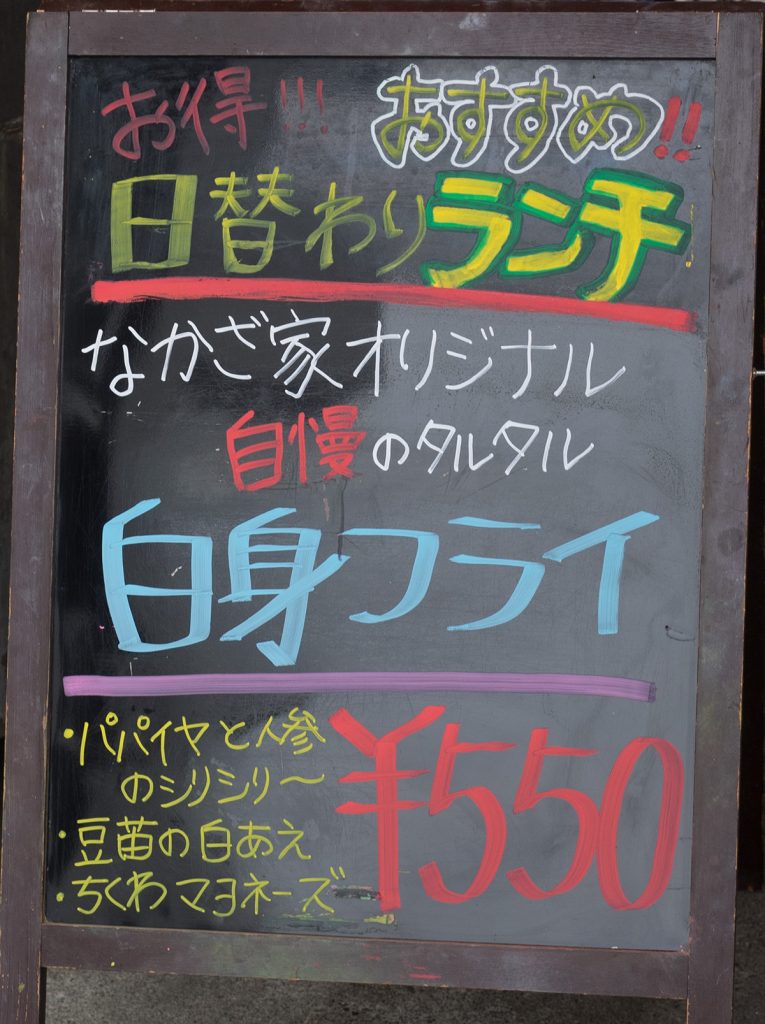 お得!!! おすすめ!!
日替わりランチ
なかざ家オリジナル
自慢のタルタル
白身フライ
・パパイヤと人参
のシリシリ〜
・豆苗の白あえ
・ちくわマヨネーズ
¥550